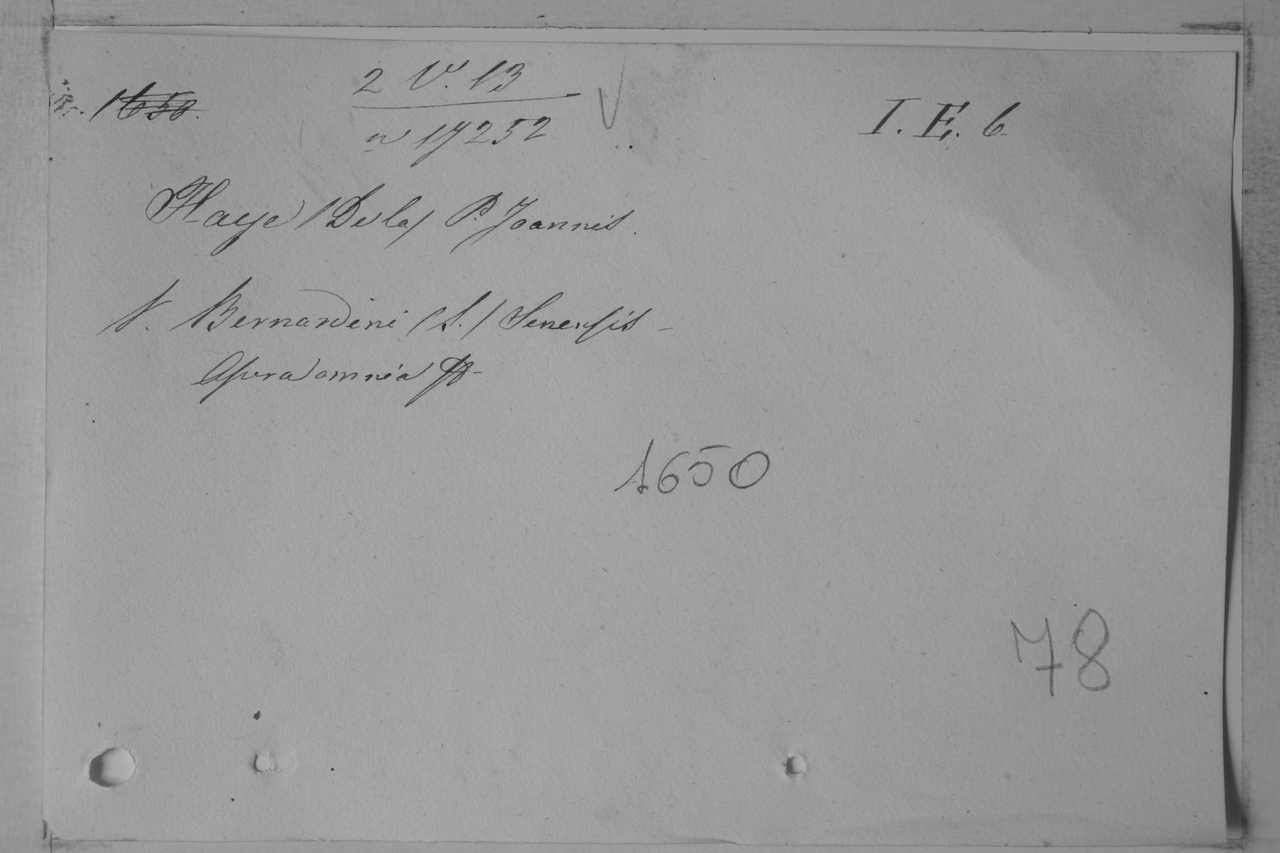 1650. 2 V. 13 I. E. 6
n 17252
Haye /Dela/ P. Joannis.
V. Bernardini /S./ Senensis
Opera omnia
1650
78